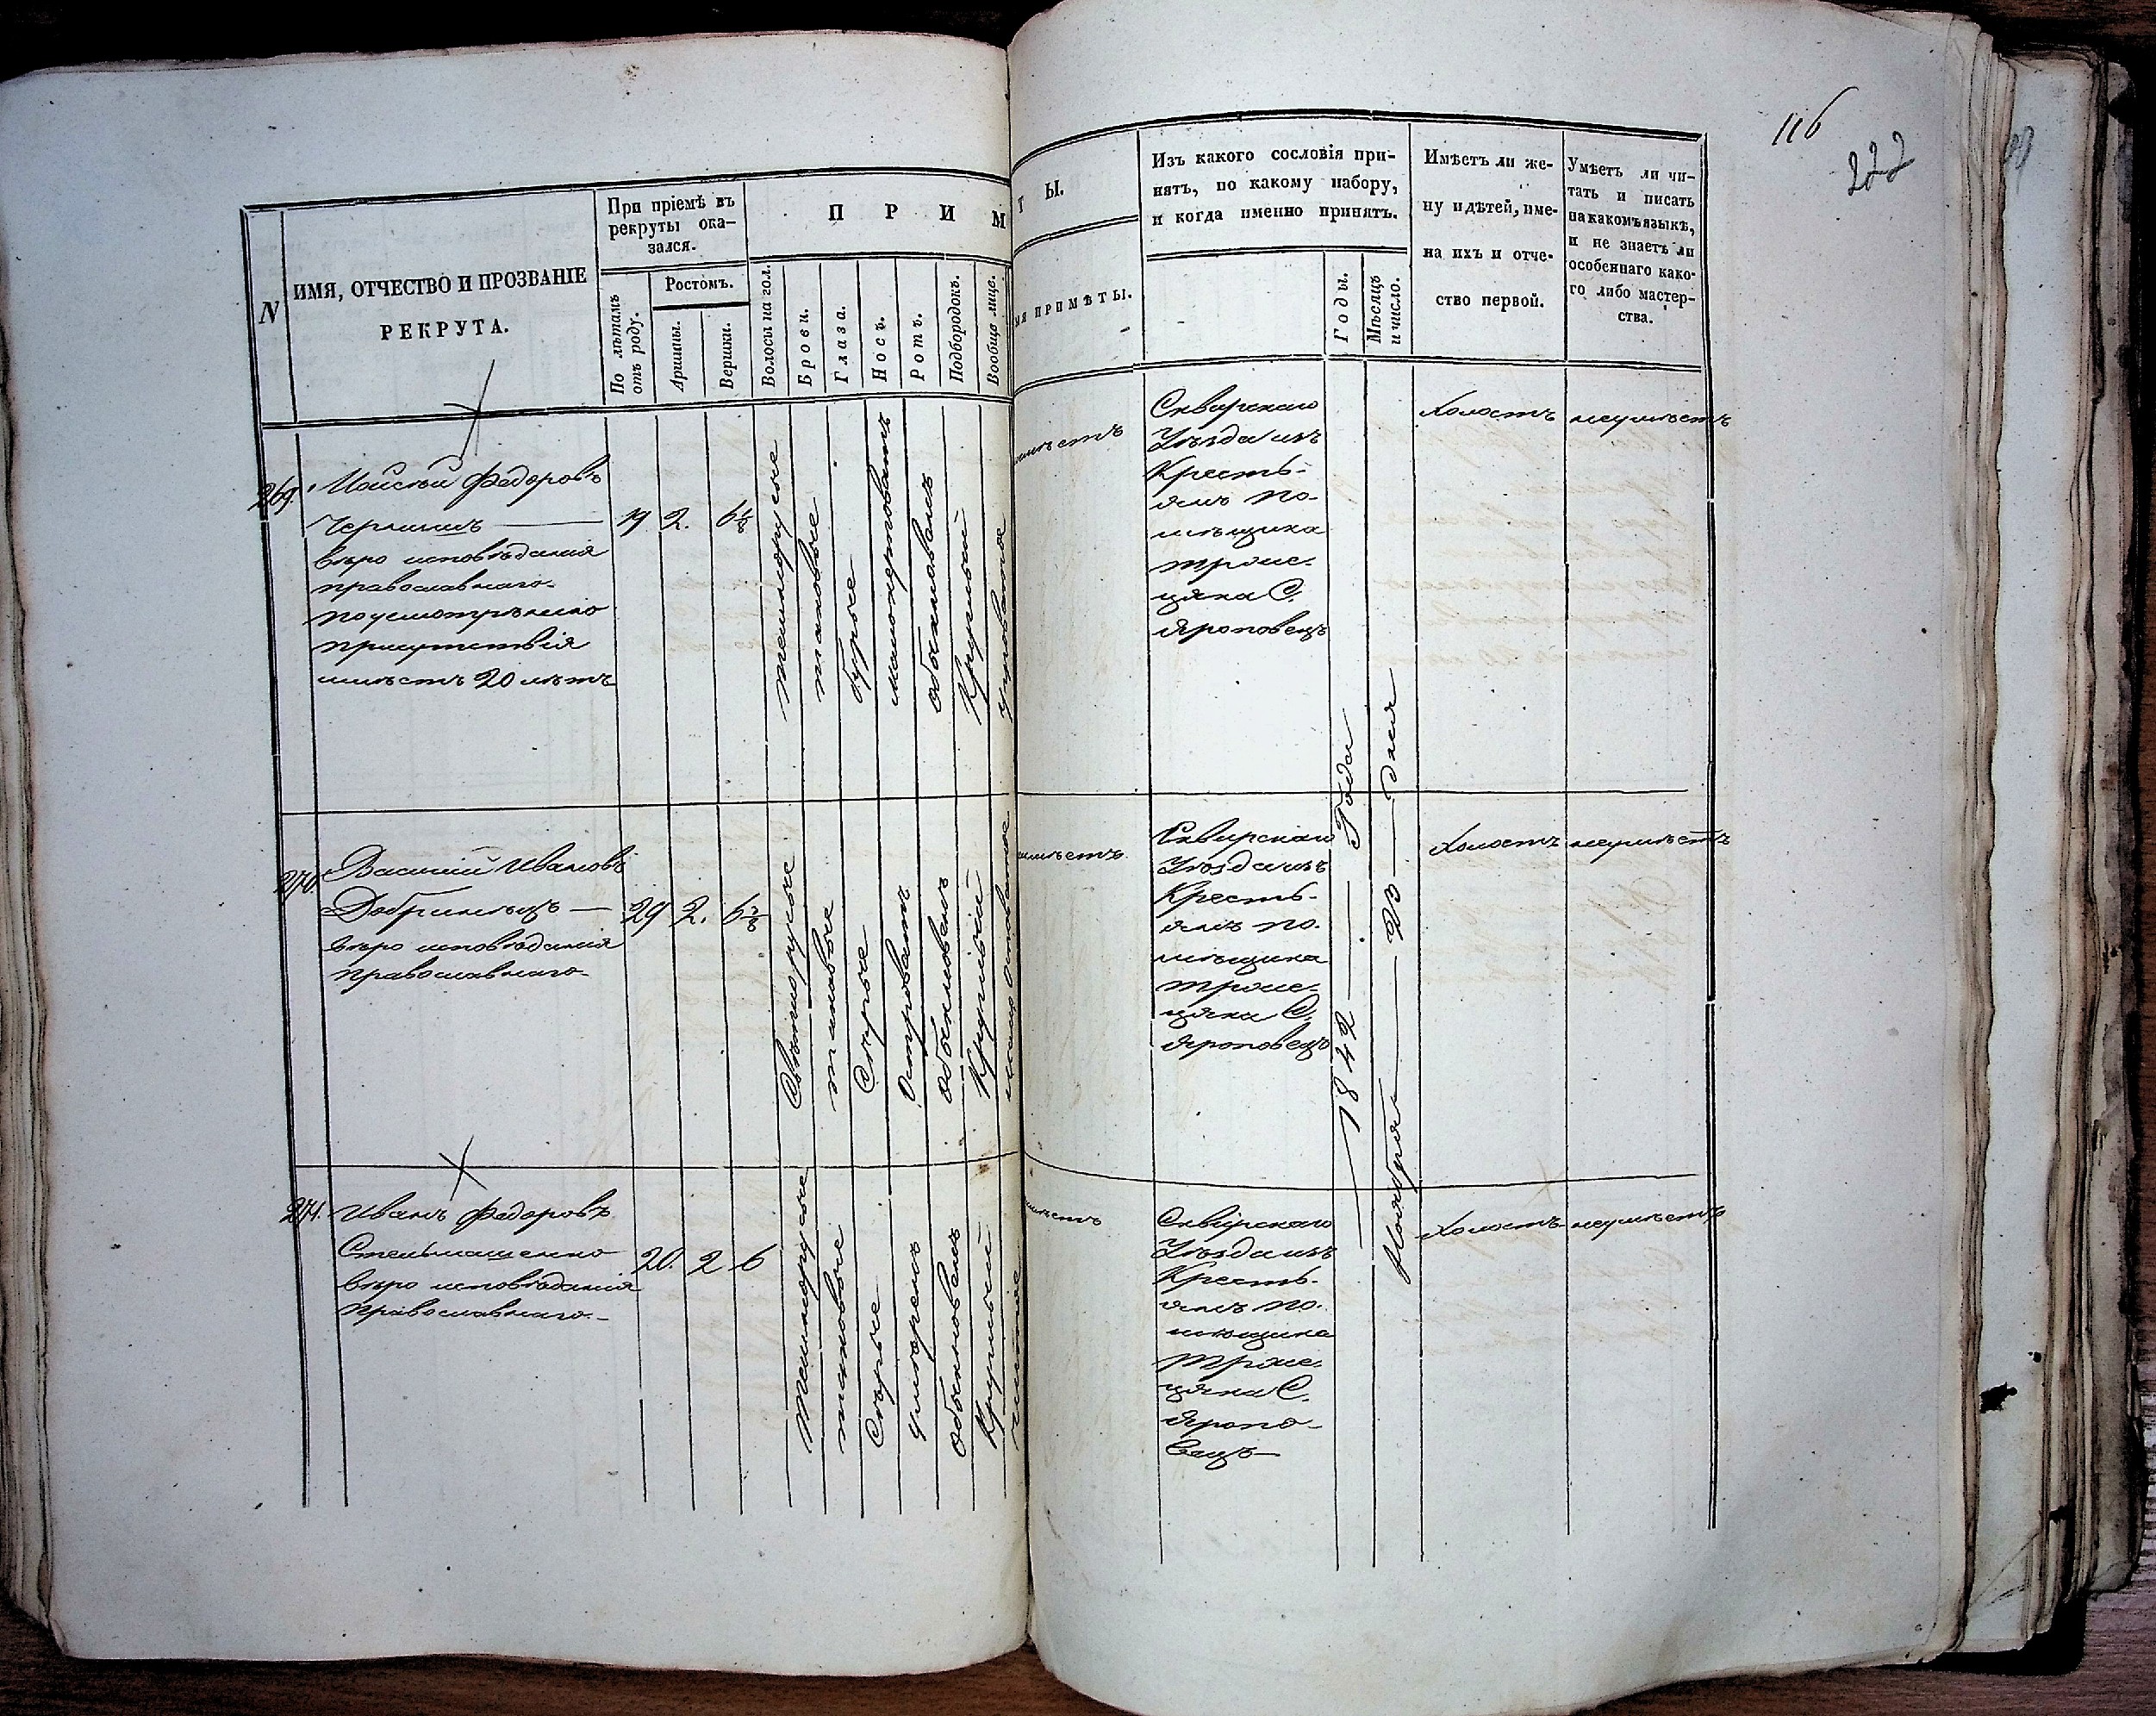 116
222
N
ИМЯ, ОТЧЕСТВО И ПРОЗВАНІЕ
РЕКРУТА.
При пріемѣ въ
рекруты ока-
зался.
По лѣтамъ
отъ роду.
Ростомъ.
Аршины.
Вершки.
П Р И М
Волосы на гол.
Брови.
Глаза.
Носъ.
Ротъ.
Подбородокъ.
Вообще лице.
Т Ы.
ЫЯ ПРИМѢТЫ.
Изъ какого сословія при-
нятъ, по какому набору,
и когда именно принятъ.
Годы.
Мѣсяцъ
и число.
Имѣетъ ли же-
ну и дѣтей, име-
на ихъ и отче-
ство первой.
Умѣетъ ли чи-
тать и писать
на какомъ языкѣ,
и не знаетъ ли
особеннаго како-
го либо мастер-
ства.
269.
Моисѣй Федоровъ
вѣро исповѣданія
православнаго.
по усмотрѣнію
присутствія
имѣетъ 20 лѣтъ
19
2.
6 1/8
темнорусые
таковые
бурые
обыкновенъ
Круглый
имѣетъ
Сквирскаго
Уѣзда изъ
Кресть-
янъ По-
мѣщика
Трже-
цяка С.
Яроповецъ
холостъ
неумѣетъ
270.
Василій Ивановъ
вѣро исповѣданія
православнаго.
29
2.
Свѣтлорусые
таковые
Сѣрые
Островатъ
обыкновенъ
Круглый
имѣетъ
Сквирскаго
Уѣзда изъ
Кресть-
янъ по-
мѣщика
Трже-
цяка С.
Яроповецъ
1842 Года
Ноября 23 дня
холостъ
неумѣетъ
271.
Иванъ Федоровъ
Стельмашенко
вѣро исповѣданія
православнаго.
20.
2
6
Темнорусые
таковые
Сѣрые
умѣренъ
обыкновенъ
Круглый
чистое
имѣетъ
Сквирскаго
Уѣзда изъ
Кресть-
янъ по-
мѣщика
Трже-
цяка С.
Яропо-
вецъ
холостъ
неумѣетъ